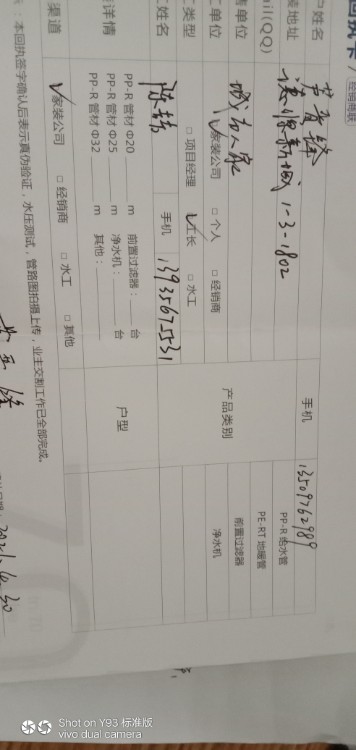 回执卡
经销商联
户姓名 手机 13509762989
装地址 滨御新城 1-3-1802
ail(QQ)
售单位 城市人家 产品类别 PP-R 给水管
工单位 ✓家装公司 □ 个人 □ 经销商 PE-RT 地暖管
工类型 □ 项目经理 ✓工长 □ 水工 前置过滤器
工姓名 手机 13935675531 净水机
详情 PP-R 管材 Φ20 m 前置过滤器： 台 户型
PP-R 管材 Φ25 m 净水机： 台
PP-R 管材 Φ32 m 其他：
渠道 ✓家装公司 □ 经销商 □ 水工 □ 其他
：本回执签字确认后表示真伪验证，水压测试，管路图拍摄上传，业主交割工作已全部完成。
Shot on Y93 标准版
vivo dual camera